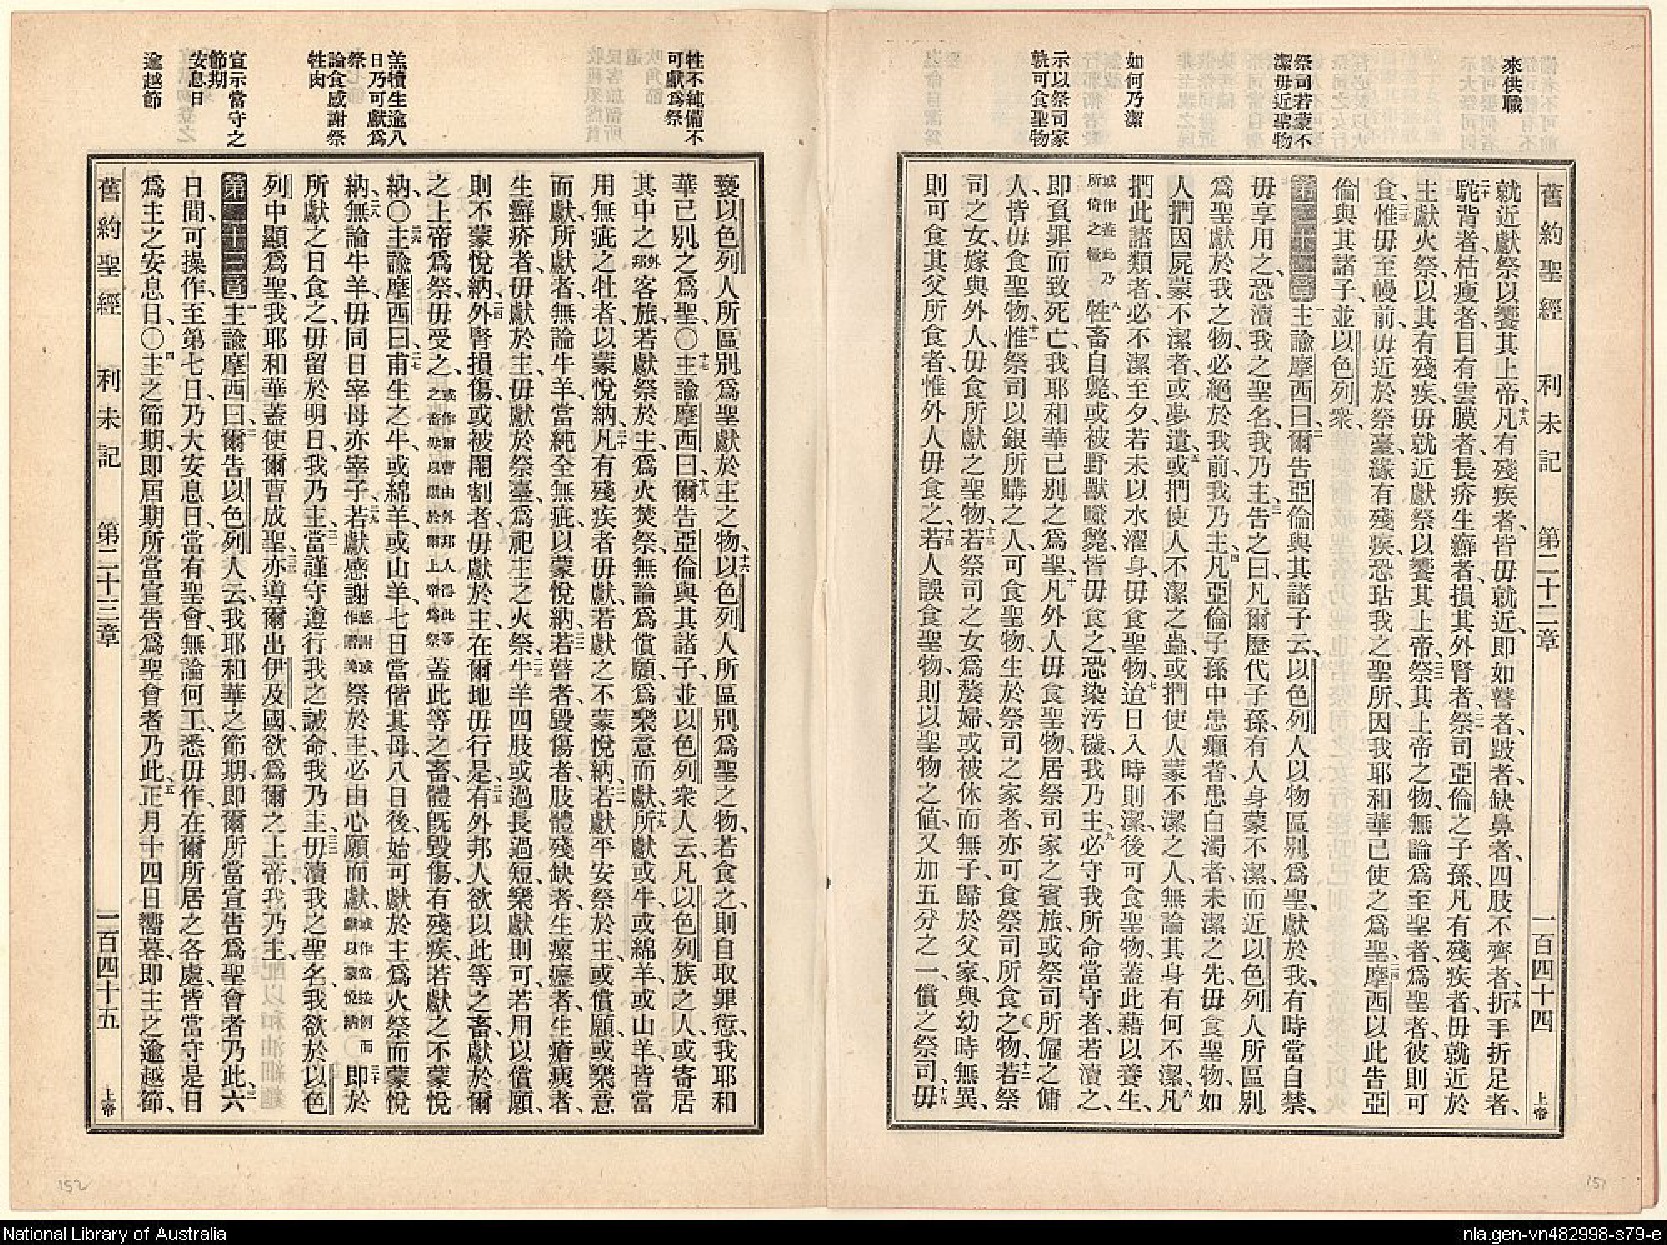 來供職
祭司若蒙不
潔毋近聖物
如何乃潔
示以祭司家
孰可食聖物
舊約聖經 利未記 第二十二章 一百四十四 上帝
就近獻祭以饗其上帝、凡有殘疾者、皆毋就近、即如瞽者、跛者、缺鼻者、四肢不齊者、折手折足者、
駝背者、枯瘦者、目有雲膜者、長疥生癬者、損其外腎者、祭司亞倫之子孫、凡有殘疾者、毋就近於
主獻火祭、以其有殘疾、毋就近獻祭以饗其上帝、祭其上帝之物、無論爲至聖者、爲聖者、彼則可
食、惟毋至幔前、毋近於祭臺、緣有殘疾、恐玷我之聖所、因我耶和華已使之爲聖、摩西以此告亞
倫與其諸子、並以色列衆、
第二十二章 主諭摩西曰、爾告亞倫與其諸子云、以色列人以物區別爲聖、獻於我、有時當自禁、
毋享用之、恐瀆我之聖名、我乃主、告之曰、凡爾歷代子孫、有人身蒙不潔、而近以色列人所區別
爲聖獻於我之物、必絕於我前、我乃主、凡亞倫子孫中、患癩者、患白濁者、未潔之先、毋食聖物、如
人捫因屍蒙不潔者、或夢遺、或捫使人不潔之蟲、或捫使人蒙不潔之人、無論其身有何不潔、凡
捫此諸類者、必不潔至夕、若未以水濯身、毋食聖物、迨日入時則潔、後可食聖物、蓋此藉以養生、
或作蓋此乃所倚之糧 牲畜自斃、或被野獸囓斃、皆毋食之、恐染汚穢、我乃主、必守我所命當守者、若瀆之、
即負罪而致死亡、我耶和華已別之爲聖、凡外人毋食聖物、居祭司家之賓旅、或祭司所僱之傭
人、皆毋食聖物、惟祭司以銀所購之人、可食聖物、生於祭司之家者、亦可食祭司所食之物、若祭
司之女、嫁與外人、毋食所獻之聖物、若祭司之女爲嫠婦、或被休而無子、歸於父家、與幼時無異、
則可食其父所食者、惟外人毋食之、若人誤食聖物、則以聖物之値、又加五分之一、償之祭司、毋
牲不純備不
可獻爲祭
羔犢生逾八
日乃可獻爲
祭
論食感謝祭
牲肉
宣示當守之
節期
安息日
逾越節
褻以色列人所區別爲聖獻於主之物、以色列人所區別爲聖之物、若食之、則自取罪愆、我耶和
華已別之爲聖○主諭摩西曰、爾告亞倫與其諸子、並以色列衆人云、凡以色列族之人、或寄居
其中之外邦客旅、若獻祭於主、爲火焚祭、無論爲償願、爲樂意而獻、所獻或牛、或綿羊、或山羊、皆當
用無疵之牡者、以蒙悅納、凡有殘疾者毋獻、若獻之、不蒙悅納、若獻平安祭於主、或償願、或樂意
而獻、所獻者、無論牛羊、當純全無疵、以蒙悅納、若瞽者、毀傷者、肢體殘缺者、生瘰癧者、生瘡痍者、
生癬疥者、毋獻於主、毋獻於祭臺、爲祀主之火祭、牛羊四肢或過長過短、樂獻則可、若用以償願、
則不蒙悅納、外腎損傷、或被閹割者、毋獻於主、在爾地毋行是、有外邦人欲以此等之畜、獻於爾
之上帝爲祭、毋受之、或作爾曹由外邦人得此等之畜毋以獻於爾上帝爲祭 蓋此等之畜、體旣毀傷、有殘疾、若獻之、不蒙悅
納○主諭摩西曰、甫生之牛、或綿羊、或山羊、七日當偕其母、八日後、始可獻於主爲火祭、而蒙悅
納、無論牛羊、毋同日宰母亦宰子、若獻感謝感謝或作讚美祭於主、必由心願而獻、或作當按例而獻以蒙悅納 即於
所獻之日食之、毋留於明日、我乃主、當謹守遵行我之誡命、我乃主、毋瀆我之聖名、我欲於以色
列中顯爲聖、我耶和華蓋使爾曹成聖、亦導爾出伊及國、欲爲爾之上帝、我乃主、
第二十三章 主諭摩西曰、爾告以色列人云、我耶和華之節期、即爾所當宣告爲聖會者乃此、六
日間、可操作、至第七日、乃大安息日、當有聖會、無論何工、悉毋作、在爾所居之各處、皆當守是日
爲主之安息日、○主之節期、即屆期所當宣告爲聖會者乃此、正月十四日嚮暮、即主之逾越節、
舊約聖經 利未記 第二十三章 一百四十五 上帝
152
151
National Library of Australia
nla.gen-vn482998-s79-e